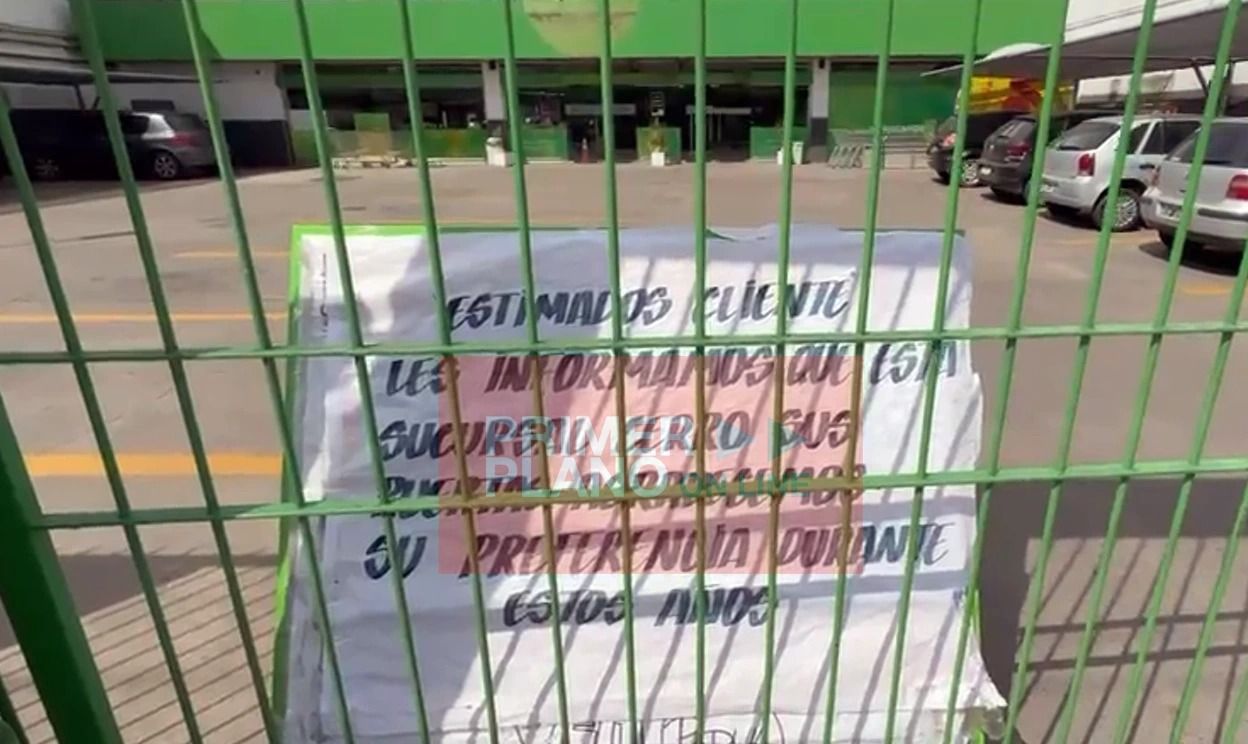 ESTIMADOS CLIENTE
LES INFORMAMOS QUE ESTA
SUCURSAL CERRO SUS
PUERTAS AGRADECEMOS
SU PREFERENCIA DURANTE
ESTOS AÑOS
PRIMER
PLANO
ON LIVE